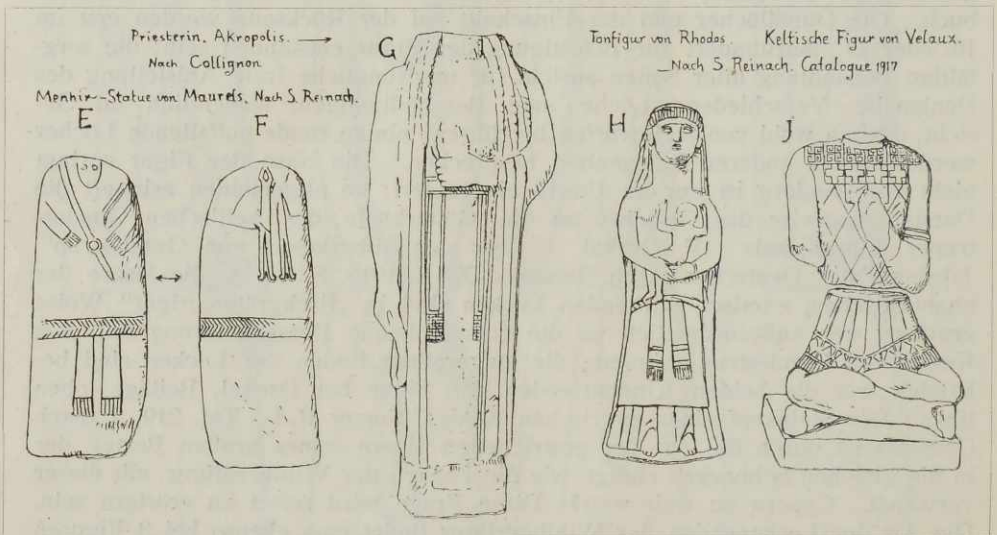 Priesterin. Akropolis.
Nach Collignon
Menhir-Statue von Maurels, Nach S. Reinach.
E
F
G
Tonfigur von Rhodos
Keltische Figur von Velaux.
Nach S. Reinach. Catalogue 1917
H
J